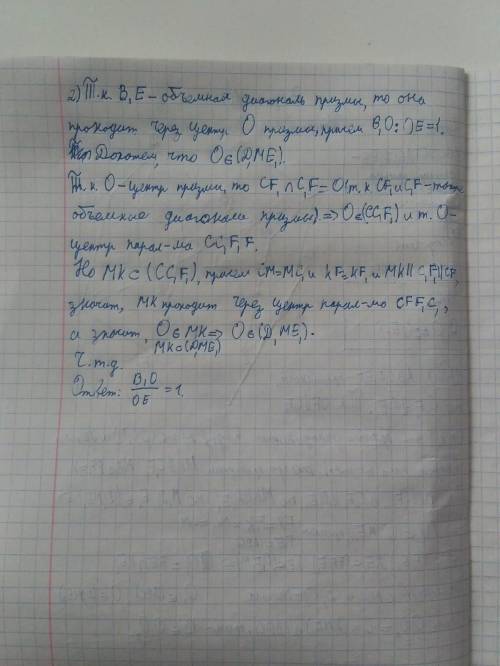 2) Т.к. B₁E – объемная диагональ призмы, то она
проходит через центр O призмы, причем B₁O:OE=1.
Докажем, что O∈(D₁ME₁).
Т.к. O-центр призмы, то CF₁∩C₁F=O (т.к CF₁ и C₁F-тоже
объемные диагонали призмы) ⇒ O∈(CC₁F₁) и т. O-
центр парал-ма CC₁F₁F.
Но MK⊂(CC₁F₁), причем CM=MC₁ и KF=KF₁ и MK∥C₁F₁∥CF,
значит, MK проходит через центр парал-ма CFF₁C₁,
а значит, O∈MK ⇒ O∈(D₁ME₁).
MK⊂(D₁ME₁)
Ч.т.д.
Ответ: B₁O/OE=1.